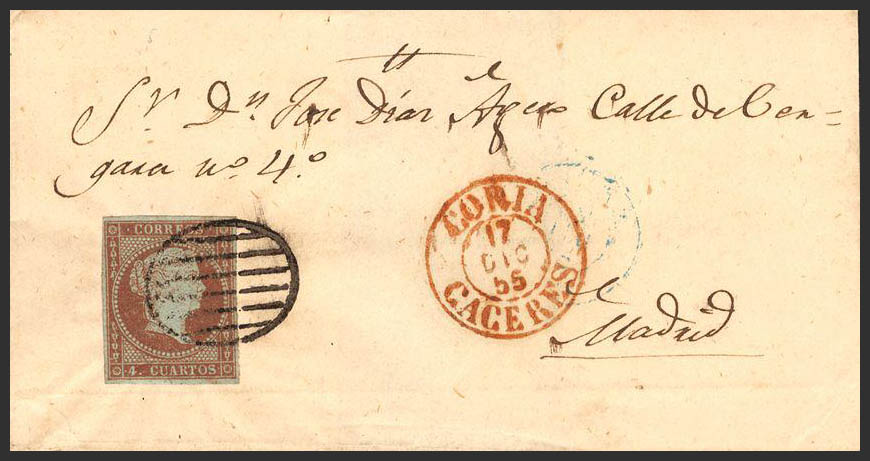 Sr Dn Jose Diaz Agero Calle de Cen=
gara no 4o
CORREOS
4. CUARTOS
CORIA
17
DIC
55
CACERES
Madrid